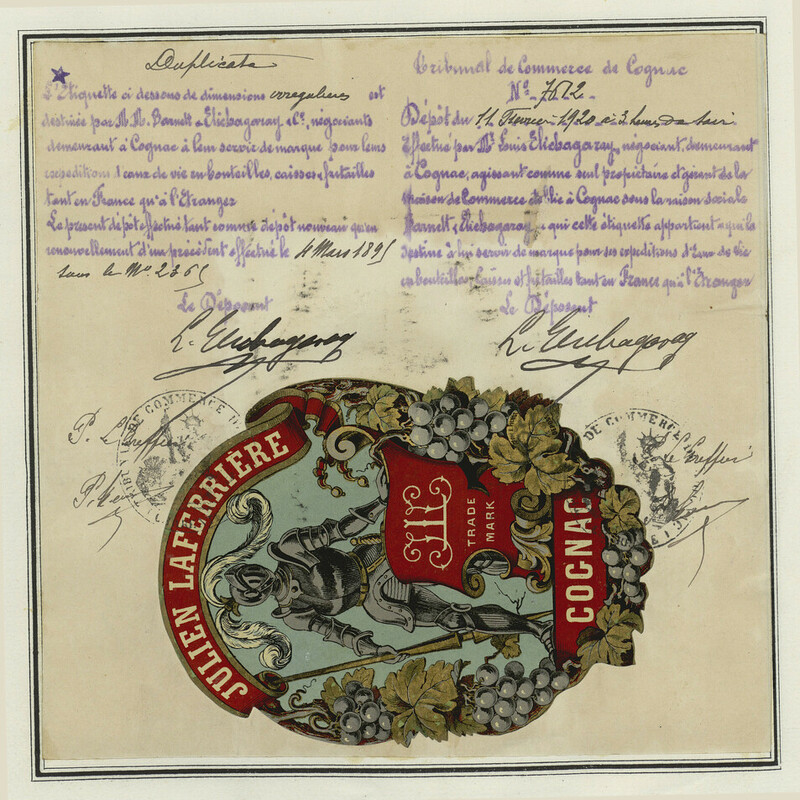 Duplicata
L'Etiquette ci dessous de dimensions irregulieres est
destinée par M.M. Barnett & Elichagaray & Cie, négociants
demeurant à Cognac à leur servir de marque pour leurs
expeditions d'eaux de vie en bouteilles, caisses & futailles
tant en France qu'à l'Etranger
Le present dépôt effectué tant comme dépôt nouveau qu'en
renouvellement d'un précédent effectué le 4 Mars 1895
sous le No 2365
Le Déposant
L. Elichagaray
Tribunal de Commerce de Cognac
No 7612
Dépôt du 11 Fevrier 1920 à 3 heures du soir
Effectué par Mr Louis Elichagaray, négociant, demeurant
à Cognac, agissant comme seul propriétaire et gérant de la
Maison de Commerce de Vie à Cognac sous la raison sociale
Barnett & Elichagaray & qui cette étiquette appartient & qui la
destine à lui servir de marque pour ses expeditions d'Eaux de Vie
en bouteilles caisses et futailles tant en France qu'à l'Etranger
Le Déposant
L. Elichagaray
P. Le Greffier
DE COMMERCE
JULIEN LAFERRIÈRE
JL
TRADE
MARK
COGNAC